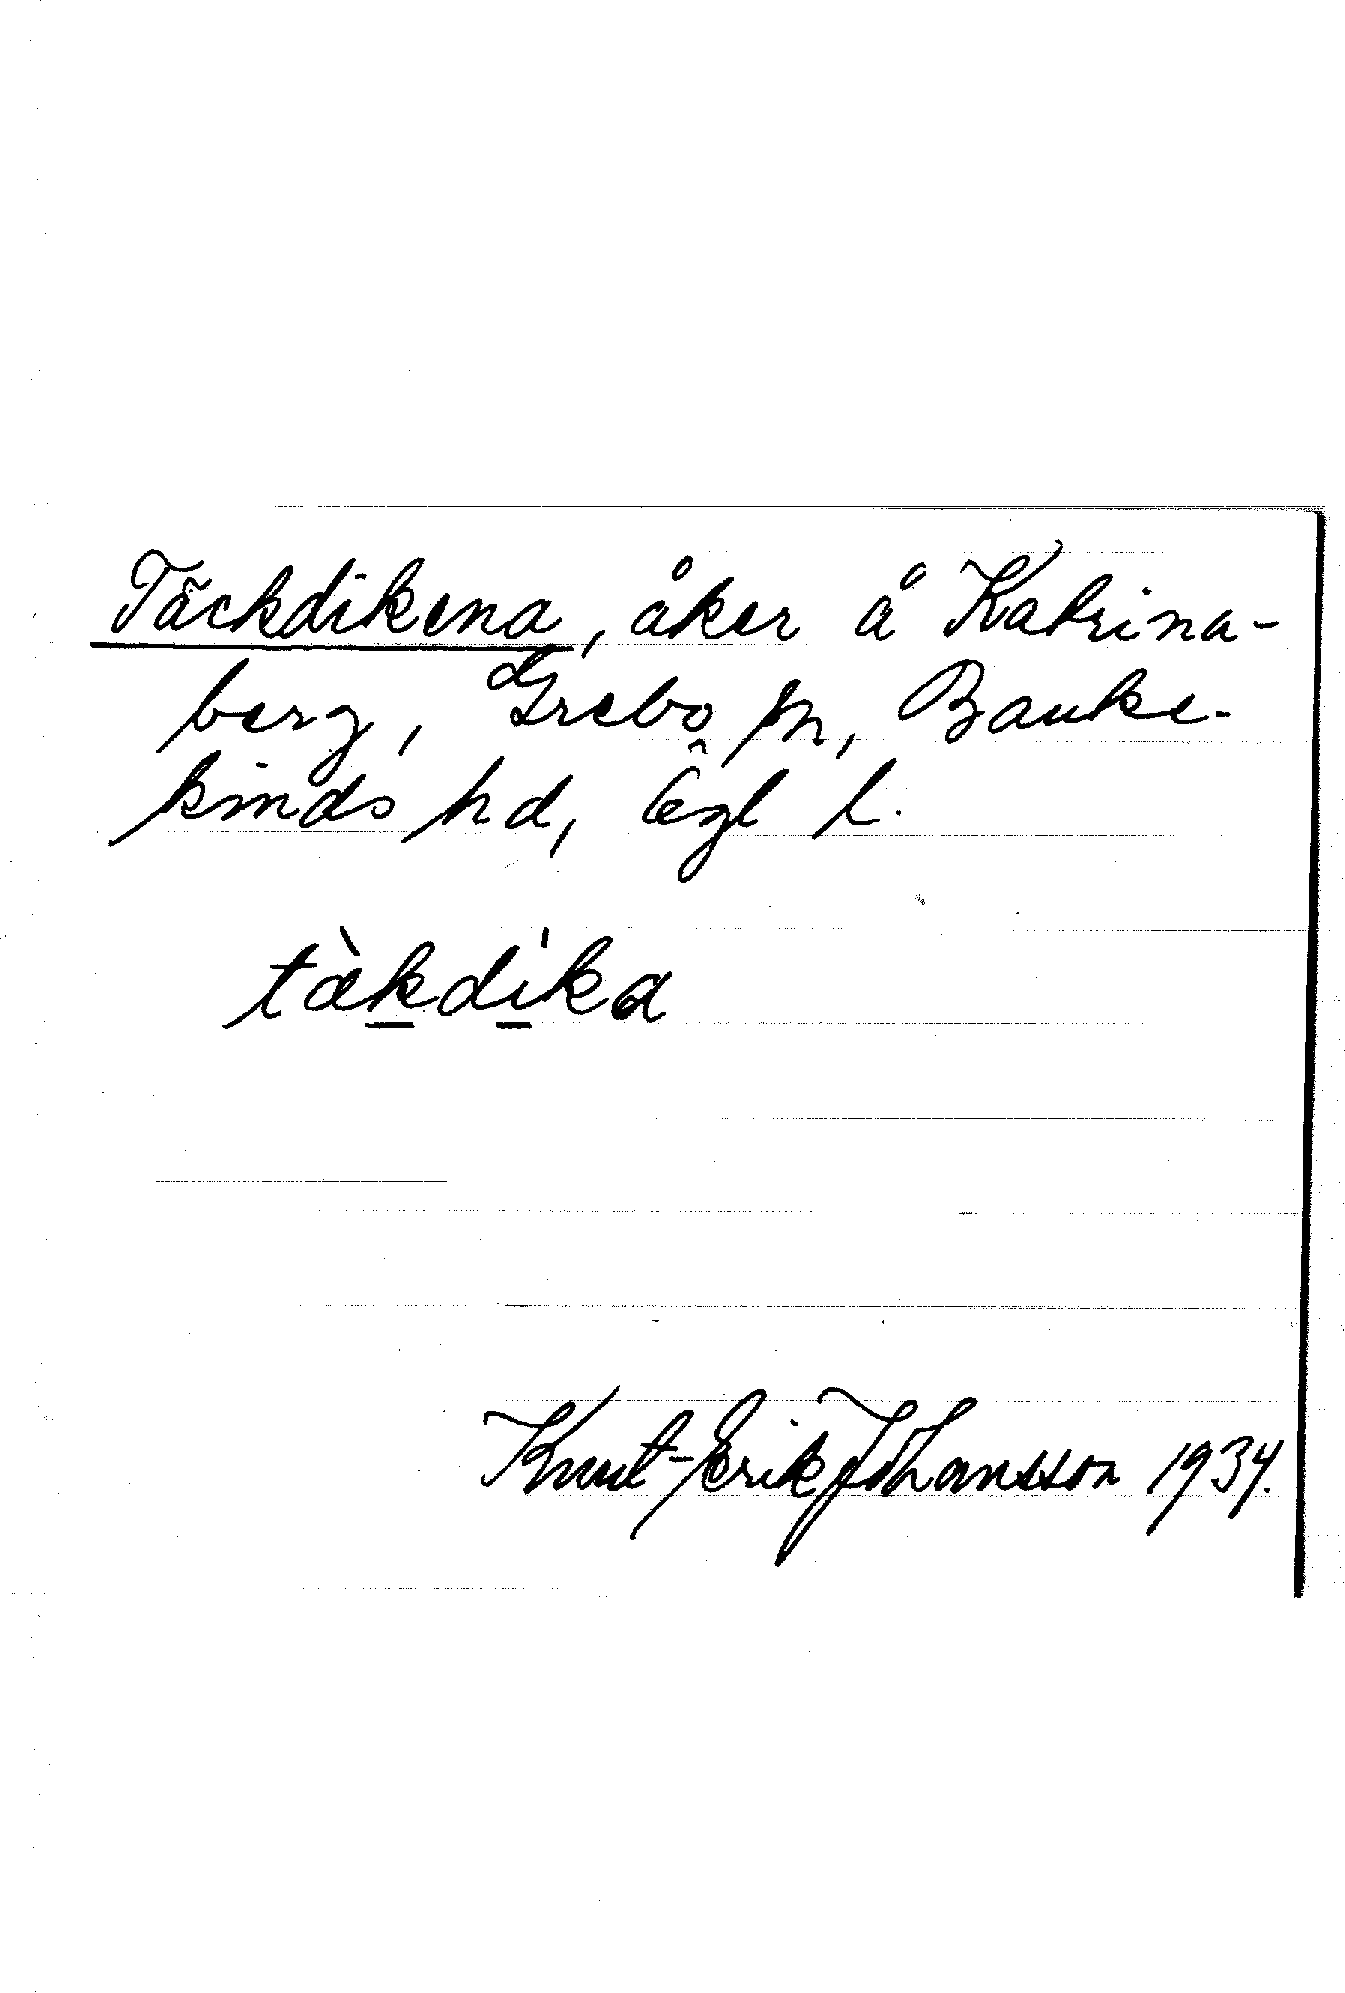 Täckdikena, åker å Katrina-
berg, Grebo sn, Banke-
kinds hd, Ögl l.
tàkdika
Knut-Erik Johansson 1934.